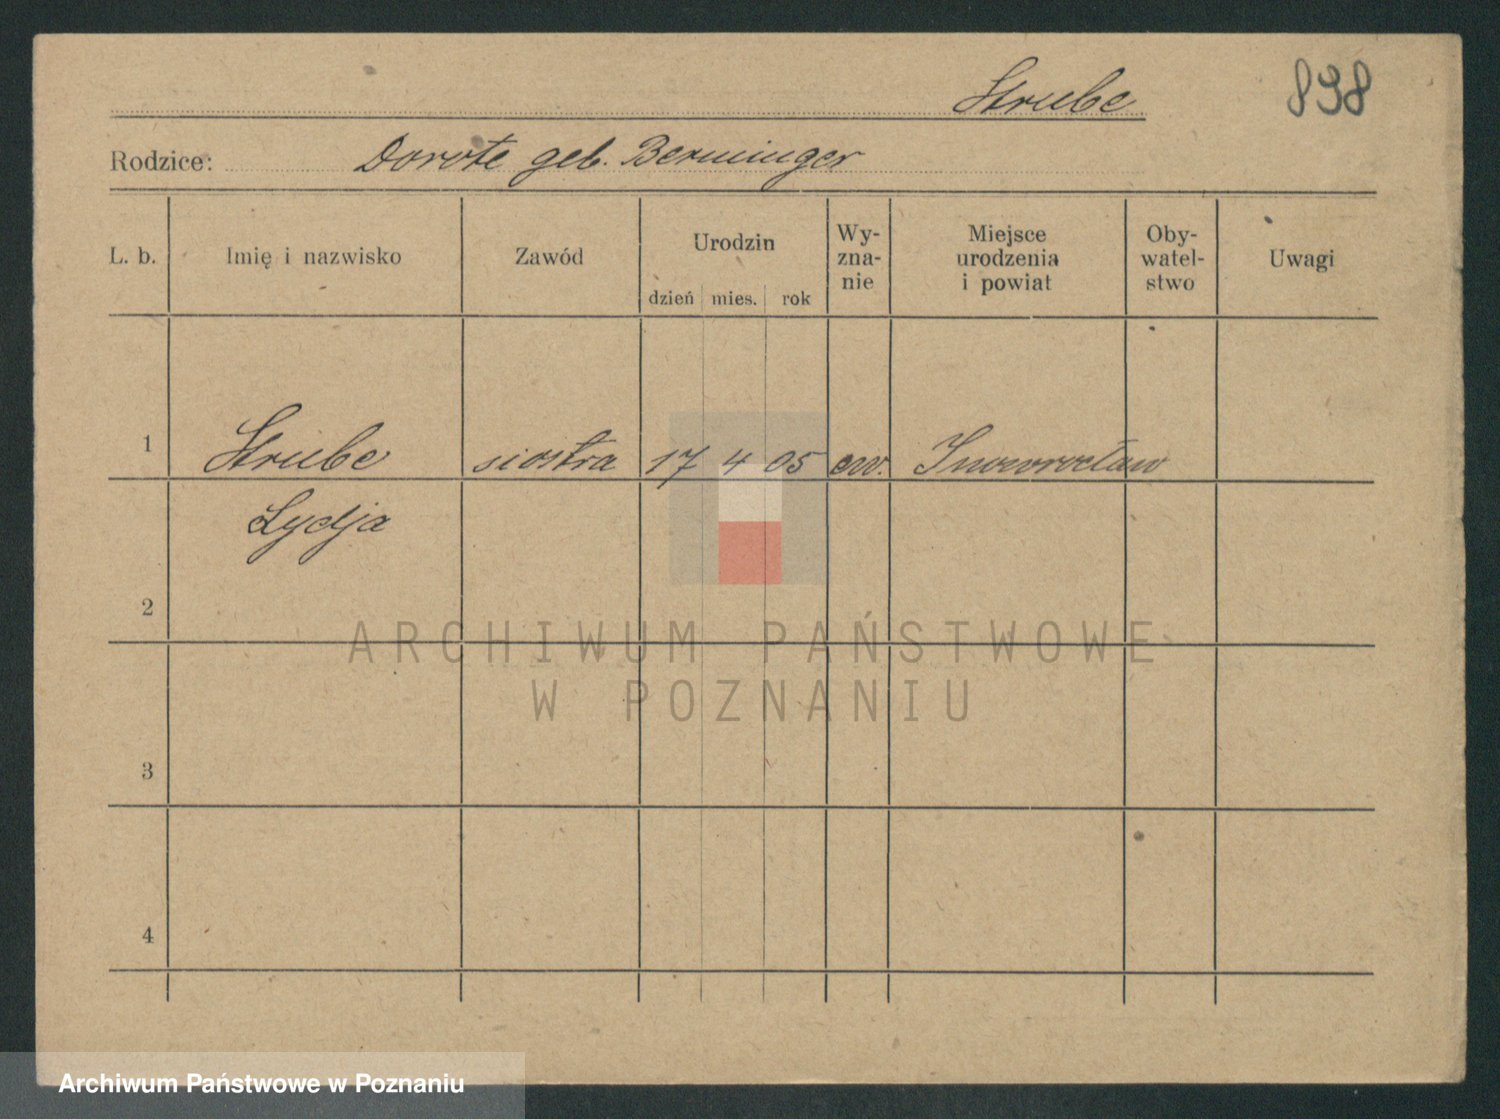 Strube
898
Rodzice: Dorote geb. Berminger
L. b. Imię i nazwisko Zawód Urodzin dzień mies. rok Wy-zna-nie Miejsce urodzenia i powiat Oby-watel-stwo Uwagi
1 Strube siostra 17 4 05 ew. Inowrocław
Lydja
2
ARCHIWUM PAŃSTWOWE
W POZNANIU
3
4
Archiwum Państwowe w Poznaniu